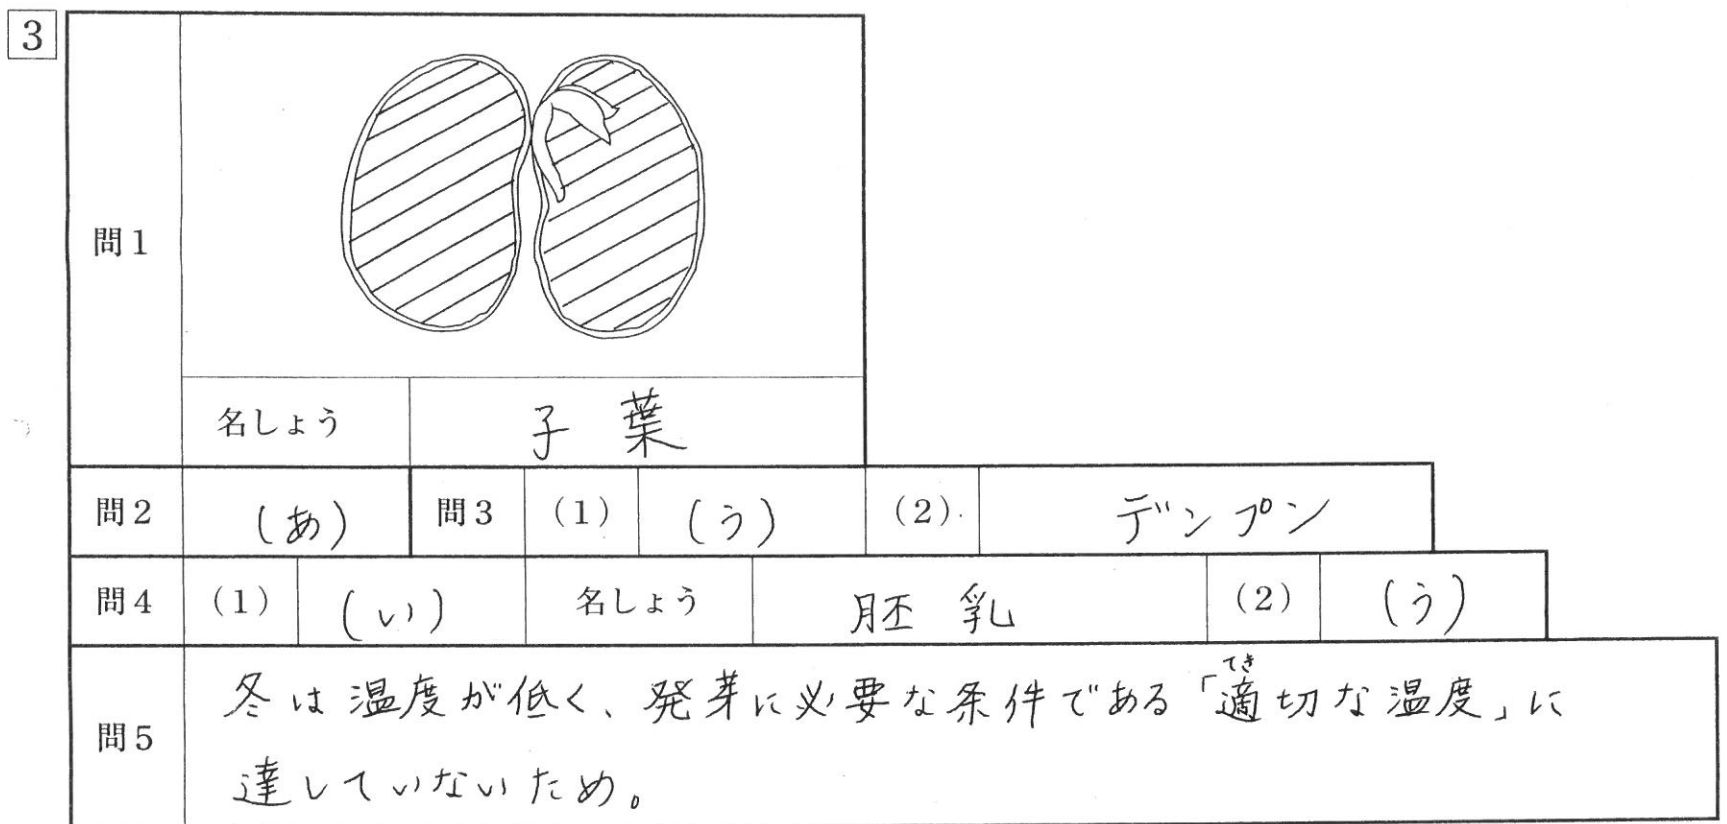 3
問1
名しょう 子葉
問2 (あ) 問3 (1) (う) (2) デンプン
問4 (1) (い) 名しょう 胚乳 (2) (う)
問5
冬は温度が低く、発芽に必要な条件である「適切な温度」に
てき
達していないため。